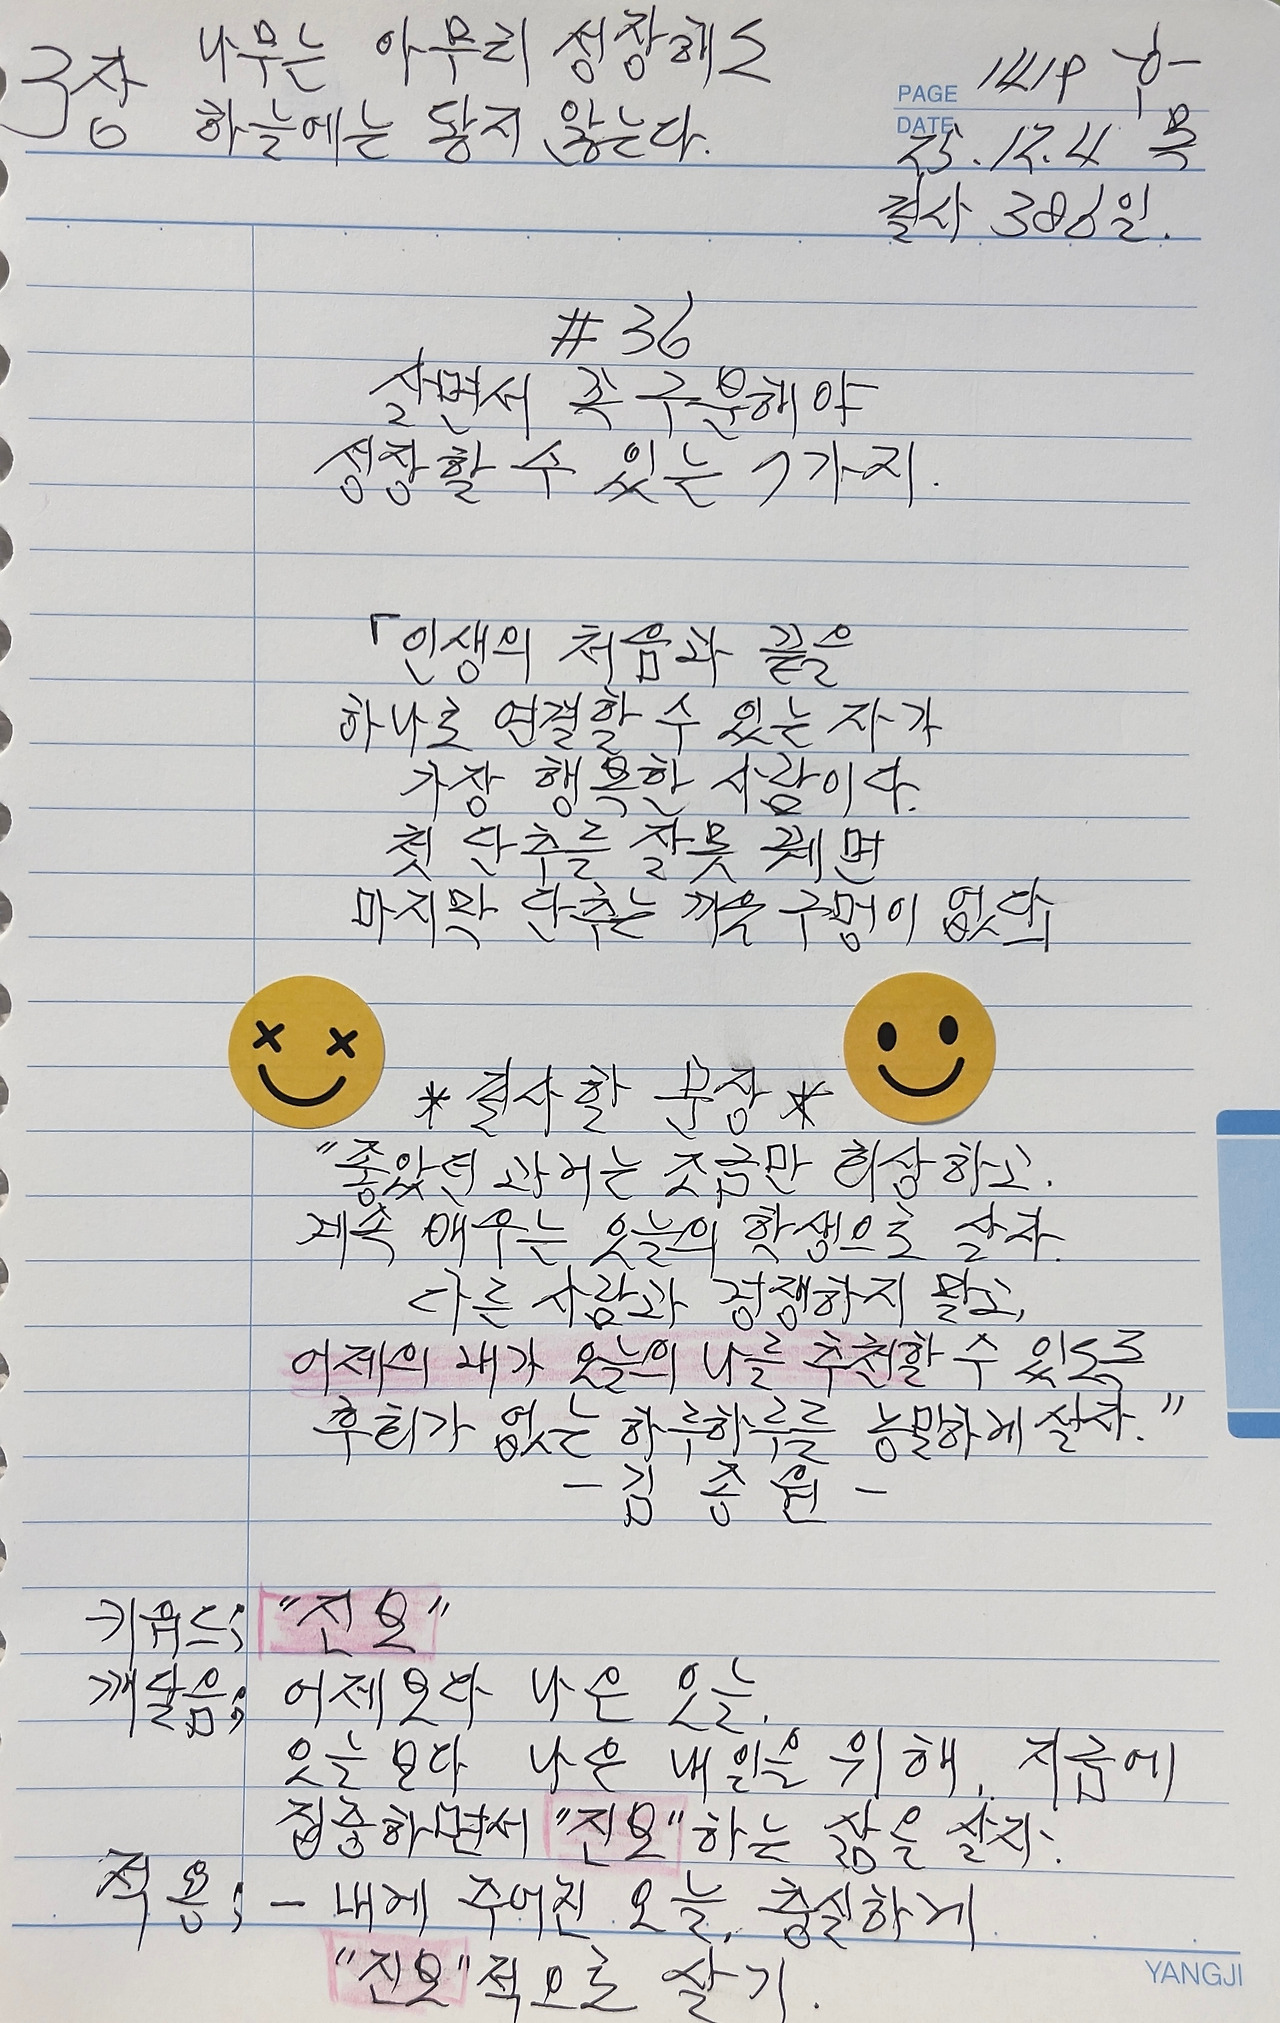 3장 나무는 아무리 성장해도
하늘에는 닿지 않는다.
PAGE 141P
DATE 25.12.4 목
필사 386일.
#36
살면서 꼭 구분해야
성장할 수 있는 7가지.
「인생의 처음과 끝을
하나로 연결할 수 있는 자가
가장 행복한 사람이다.
첫 단추를 잘못 꿰면
마지막 단추는 끼울 구멍이 없다」
*필사할 문장*
"좋았던 과거는 조금만 회상하고.
계속 배우는 오늘의 학생으로 살자.
다른 사람과 경쟁하지 말고,
어제의 내가 오늘의 나를 추천할 수 있도록
후회가 없는 하루하루를 농밀하게 살자."
-김종원-
키워드; "진보"
깨달음; 어제보다 나은 오늘.
오늘보다 나은 내일을 위해, 지금에
집중하면서 "진보"하는 삶을 살자.
적용; - 내게 주어진 오늘, 충실하게
"진보"적으로 살기.
YANGJI